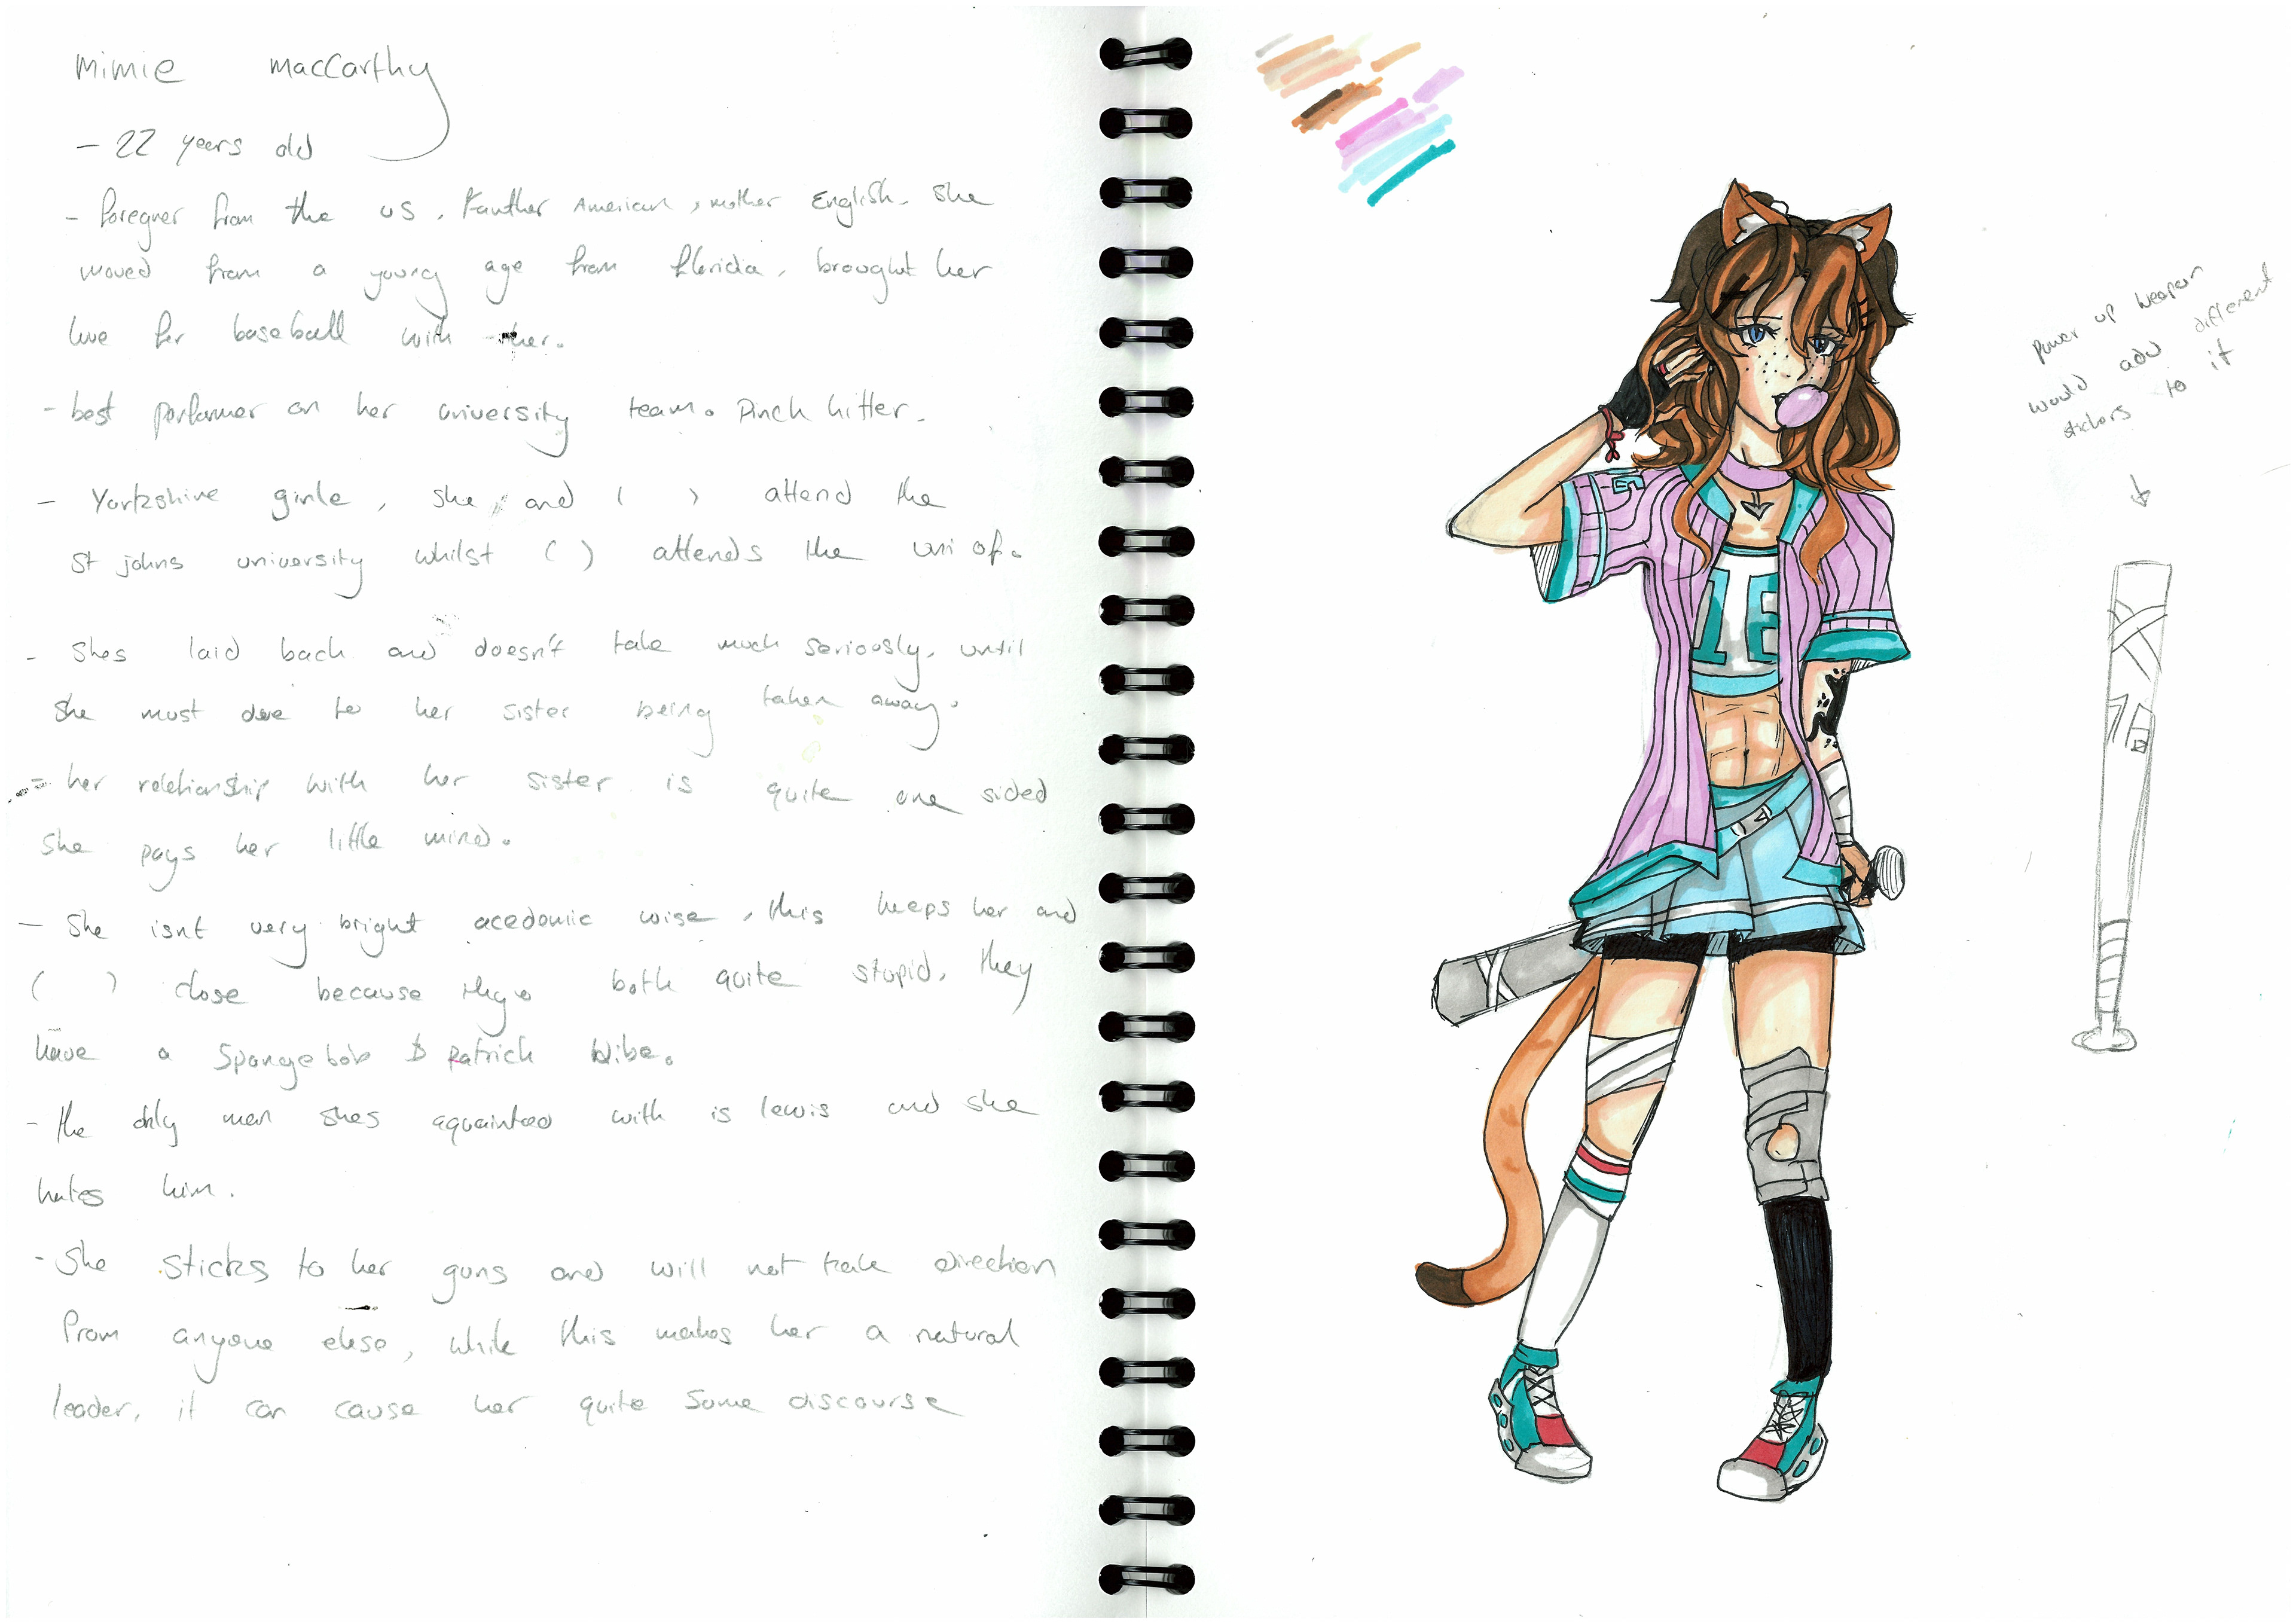 mimie maccarthy
- 22 years old
- foregner from the US. Fauther American, mother English. She
moved from a young age from floridia, brought her
love for baseball with her.
- best performer on her university team. Pinch hitter.
- Yorkshire girle, she and ( ) attend the
St johns university whilst ( ) attends the uni of.
- Shes laid back and doesn't take much seriously, until
She must due to her sister being taken away.
- her relationship with her sister is quite one sided
She pays her little mind.
- She isnt very bright acedomic wise, this keeps her and
( ) close because both quite stupid. they
have a Spongebob & Patrick vibe.
- the only man shes aquainted with is lewis and she
hates him.
- She sticks to her guns and will not take direction
from anyone else, while this makes her a natural
leader, it can cause her quite some discourse
power up weapon
would add different
stickers to it
16